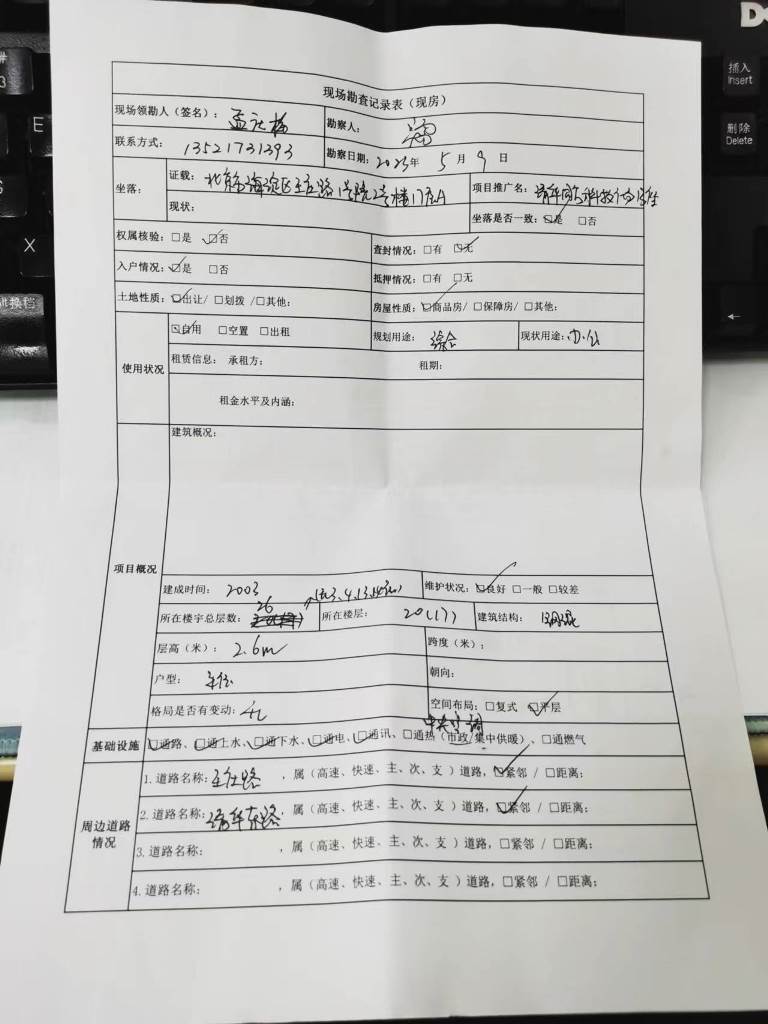 插入
Insert
删除
Delete
E
X
现场勘查记录表（现房）
现场领勘人（签名）： 勘察人：
联系方式： 13521731393 勘察日期：2023年 5 月 9 日
坐落： 证载： 北京市海淀区王庄路1号院2号楼17层A 项目推广名：清华同方科技
现状： 坐落是否一致：☑是 □否
权属核验：□是 ☑否 查封情况：□有 ☑无
入户情况：☑是 □否 抵押情况：□有 □无
土地性质：☑出让/ □划拨 /□其他： 房屋性质：☑商品房/ □保障房/ □其他：
使用状况 ☑自用 □空置 □出租 规划用途： 综合 现状用途：办公
租赁信息： 承租方： 租期：
租金水平及内涵：
项目概况 建筑概况：
建成时间： 2003 (无3.4.13.14.) 维护状况：☑良好 □一般 □较差
所在楼宇总层数： 26 所在楼层： 20(17) 建筑结构： 钢混
层高（米）： 2.6m 跨度（米）：
户型： 朝向：
格局是否有变动： 无 空间布局：□复式 ☑平层
中央空调
基础设施 ☑通路、☑通上水、☑通下水、☑通电、☑通讯、□通热（市政/集中供暖）、□通燃气
周边道路情况 1.道路名称：王庄路 ，属（高速、快速、主、次、支 ）道路，☑紧邻 / □距离：
2.道路名称：清华东路 ，属（高速、快速、主、次、支 ）道路，☑紧邻 / □距离：
3.道路名称： ，属（高速、快速、主、次、支 ）道路，□紧邻 / □距离：
4.道路名称： ，属（高速、快速、主、次、支 ）道路，□紧邻 / □距离：